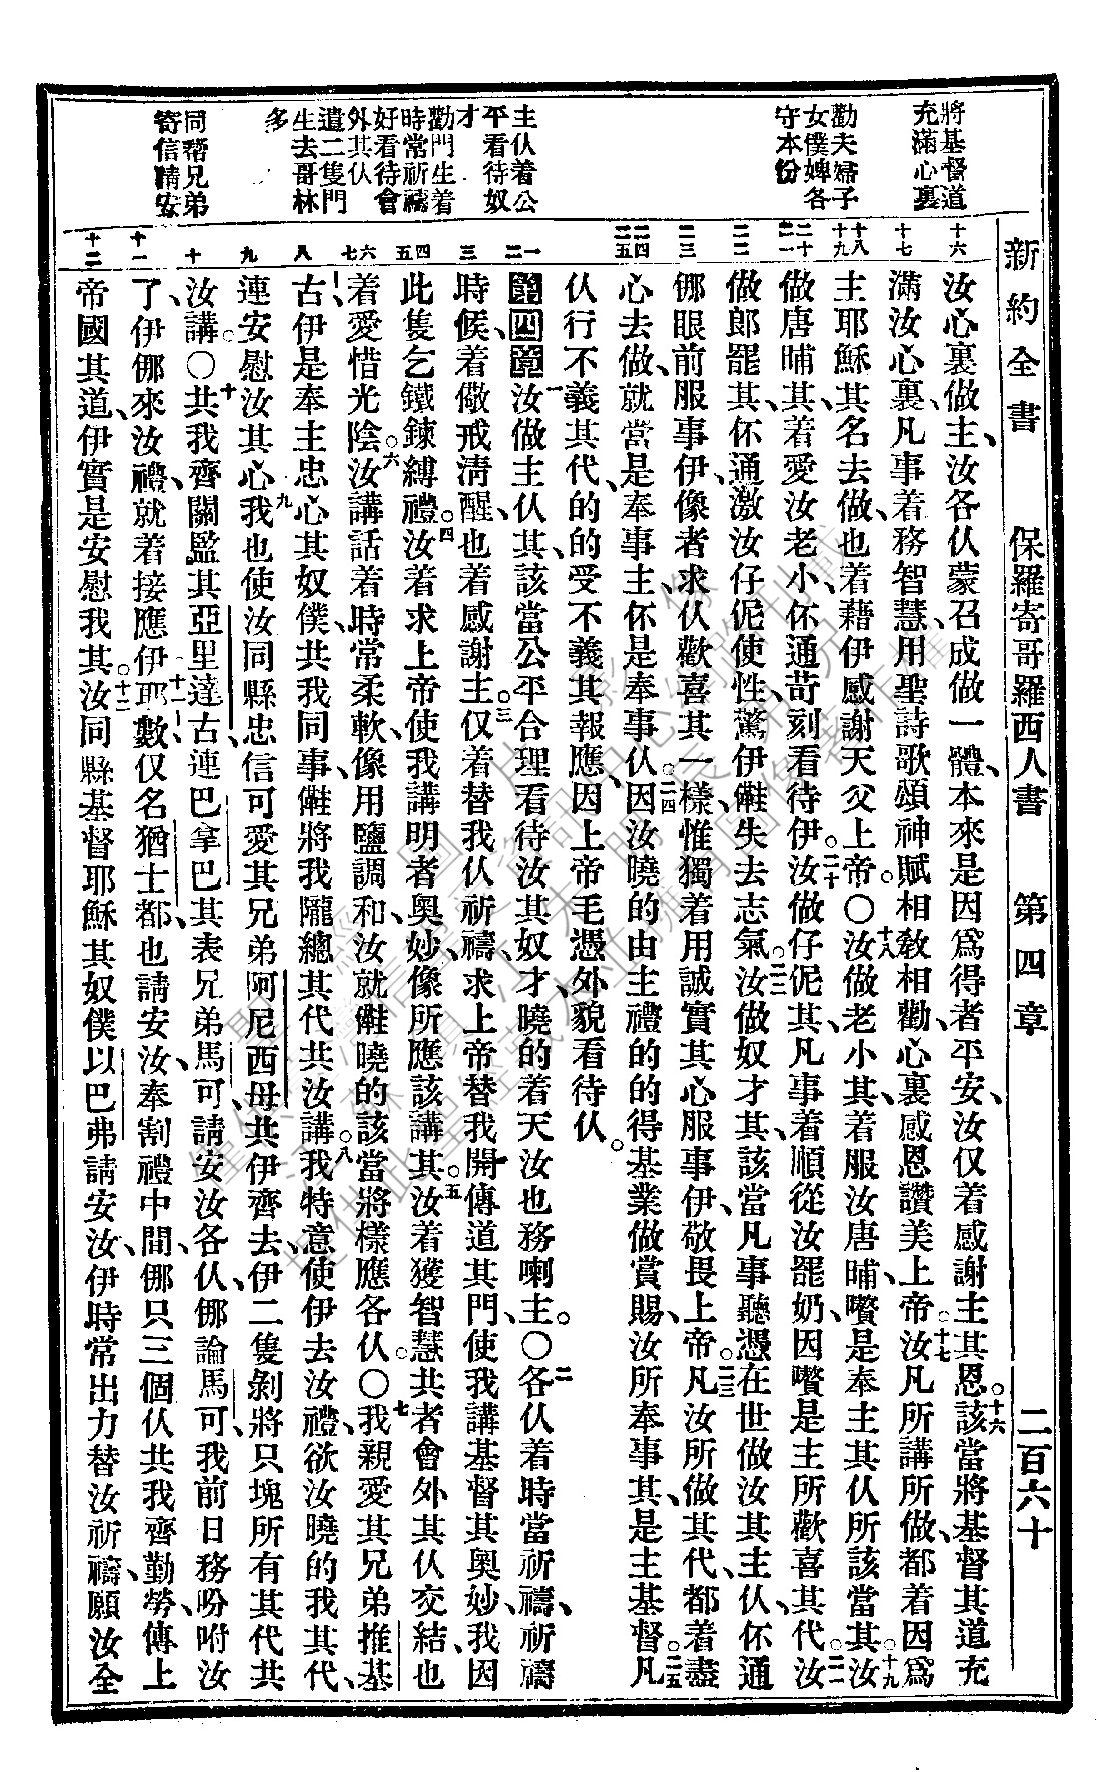 新約全書 保羅寄哥羅西人書 第四章 二百六十
將基督道
充滿心裏
勸夫婦子
女僕婢各
守本份
主仆着公
平看待奴
才
勸門生着
時常祈禱
好看待會
外其仆
遣二隻門
生去哥林
多
同幫兄弟
寄信請安
十六
十七
十八
十九
二十
二一
二二
二三
二四
二五
一
二
三
四
五
六
七
八
九
十
十一
十二
汝心裏做主、汝各仆蒙召成做一體、本來是因爲得者平安、汝仅着感謝主其恩。十六該當將基督其道充
滿汝心裏、凡事着務智慧、用聖詩歌頌神賦相教相勸、心裏感恩讚美上帝。十七汝凡所講所做、都着因爲
主耶穌其名去做、也着藉伊感謝天父上帝。〇十八汝做老小其、着服汝唐晡、囋是奉主其仆所該當其。十九汝
做唐晡其、着愛汝老小、伓通苛刻看待伊。二十汝做仔伲其、凡事着順從汝罷奶、因囋是主所歡喜其代。二一汝
做郎罷其、伓通激汝仔伲使性、驚伊㒰失去志氣。二二汝做奴才其、該當凡事聽憑在世做汝其主仆、伓通
㑚眼前服事伊、像者求仆歡喜其一樣、惟獨着用誠實其心服事伊、敬畏上帝。二三凡汝所做其代、都着盡
心去做、就當是奉事主、伓是奉事仆。二四因汝曉的由主禮的的得基業做賞賜、汝所奉事其、是主基督。二五凡
仆行不義其代、的的受不義其報應、因上帝毛憑外貌看待仆。
第四章 一汝做主仆其、該當公平合理看待汝其奴才、曉的着天汝也務喇主。〇二各仆着時常祈禱、祈禱
時候、着儆戒淸醒、也着感謝主。三仅着替我仆祈禱、求上帝替我開傳道其門、使我講基督其奥妙、我因
此隻乞鐵鍊縛禮。四汝着求上帝使我講明者奥妙、像所應該講其。五汝着獲智慧、共者會外其仆交結、也
着愛惜光陰。六汝講話着時常柔軟、像用鹽調和、汝就㒰曉的該當將樣應各仆。〇七我親愛其兄弟推基
古、伊是奉主忠心其奴僕、共我同事、㒰將我隴總其代共汝講。八我特意使伊去汝禮、欲汝曉的我其代、
連安慰汝其心。九我也使汝同縣忠信可愛其兄弟阿尼西母、共伊齊去、伊二隻剝將只塊所有其代共
汝講。〇十共我齊關監其亞里達古、連巴拿巴其表兄弟馬可、請安汝各仆、㑚論馬可、我前日務吩咐汝
了、伊㑚來汝禮、就着接應伊。十一耶數仅名猶士都、也請安汝、奉割禮中間、㑚只三個仆共我齊勤勞、傳上
帝國其道、伊實是安慰我其。十二汝同縣基督耶穌其奴僕以巴弗、請安汝、伊時常出力替汝祈禱、願汝全